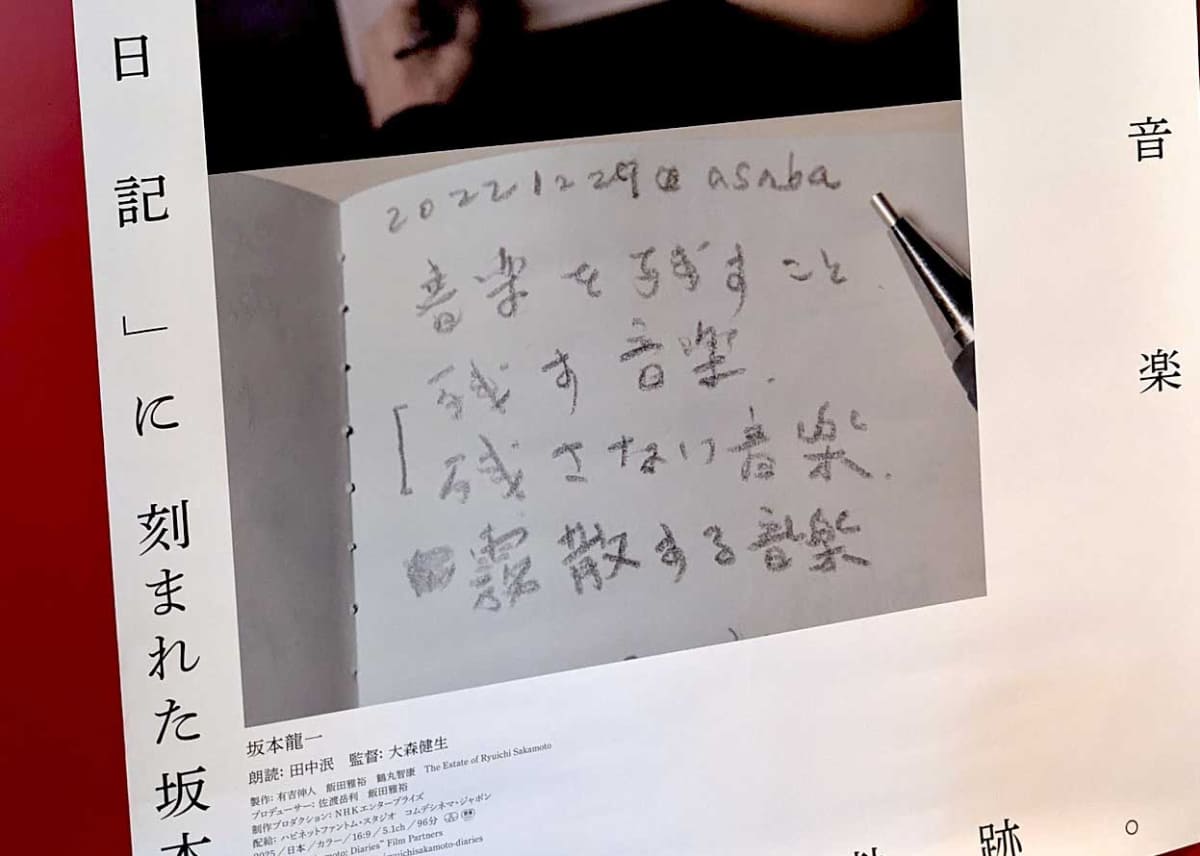 音楽
日記」に刻まれた坂本
20221229@ asaba
音楽を残すこと
残す音楽.
残さない音楽.
霧散する音楽
坂本龍一
朗読: 田中泯　監督: 大森健生
製作: 有吉伸人　飯田雅裕　鶴丸智康　The Estate of Ryuichi Sakamoto
プロデューサー: 佐渡岳利　飯田雅裕
制作プロダクション: NHKエンタープライズ
配給: ハピネットファントム・スタジオ　コムデシネマ・ジャポン
2025／日本／カラー／16:9／5.1ch／96分
moto: Diaries" Film Partners
uichisakamoto-diaries
跡。